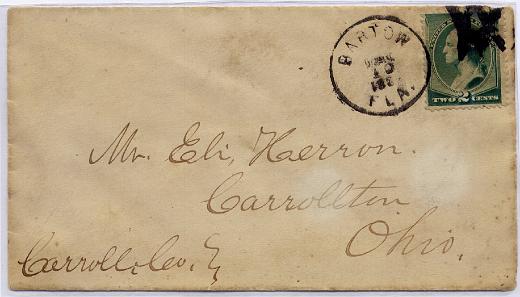 BARTOW
10
188
FLA.
TWO 2 CENTS
Mr. Eli, Herron.
Carrollton
Ohio.
Carroll, Co,